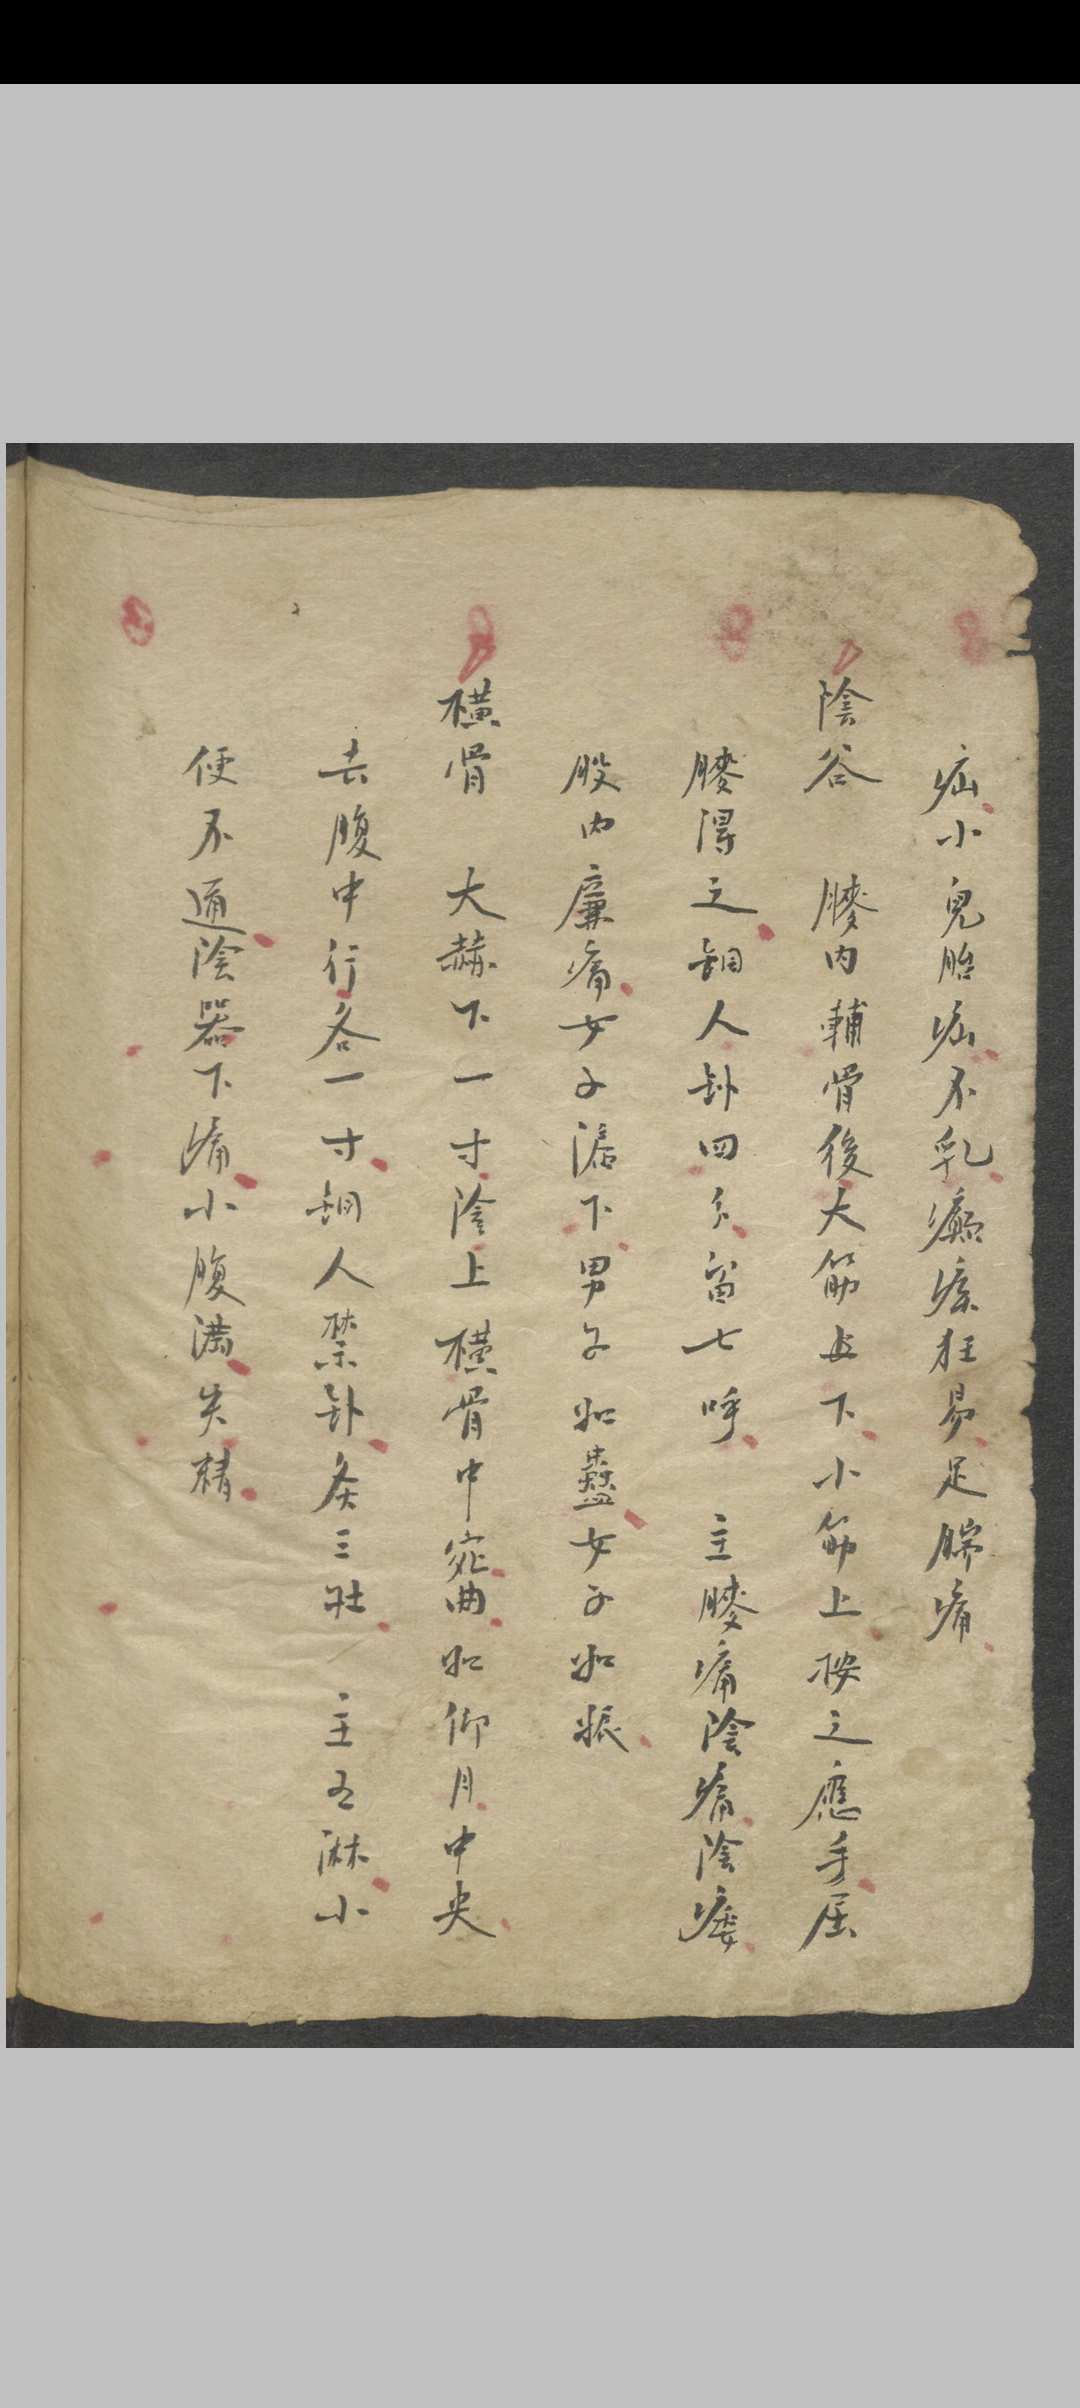 疝小兒胎疝不乳癲疾狂易足腨痛
陰谷 膝内輔骨後大筋上下小筋上按之應手屈
膝得之銅人針四分留七呼 主膝痛陰痛陰痿
股内廉痛女子漏下男子如蠱女子如娠
横骨 大赫下一寸陰上横骨中宛曲如仰月中央
去腹中行各一寸銅人禁針灸三壮 主五淋小
便不通陰器下痛小腹满失精